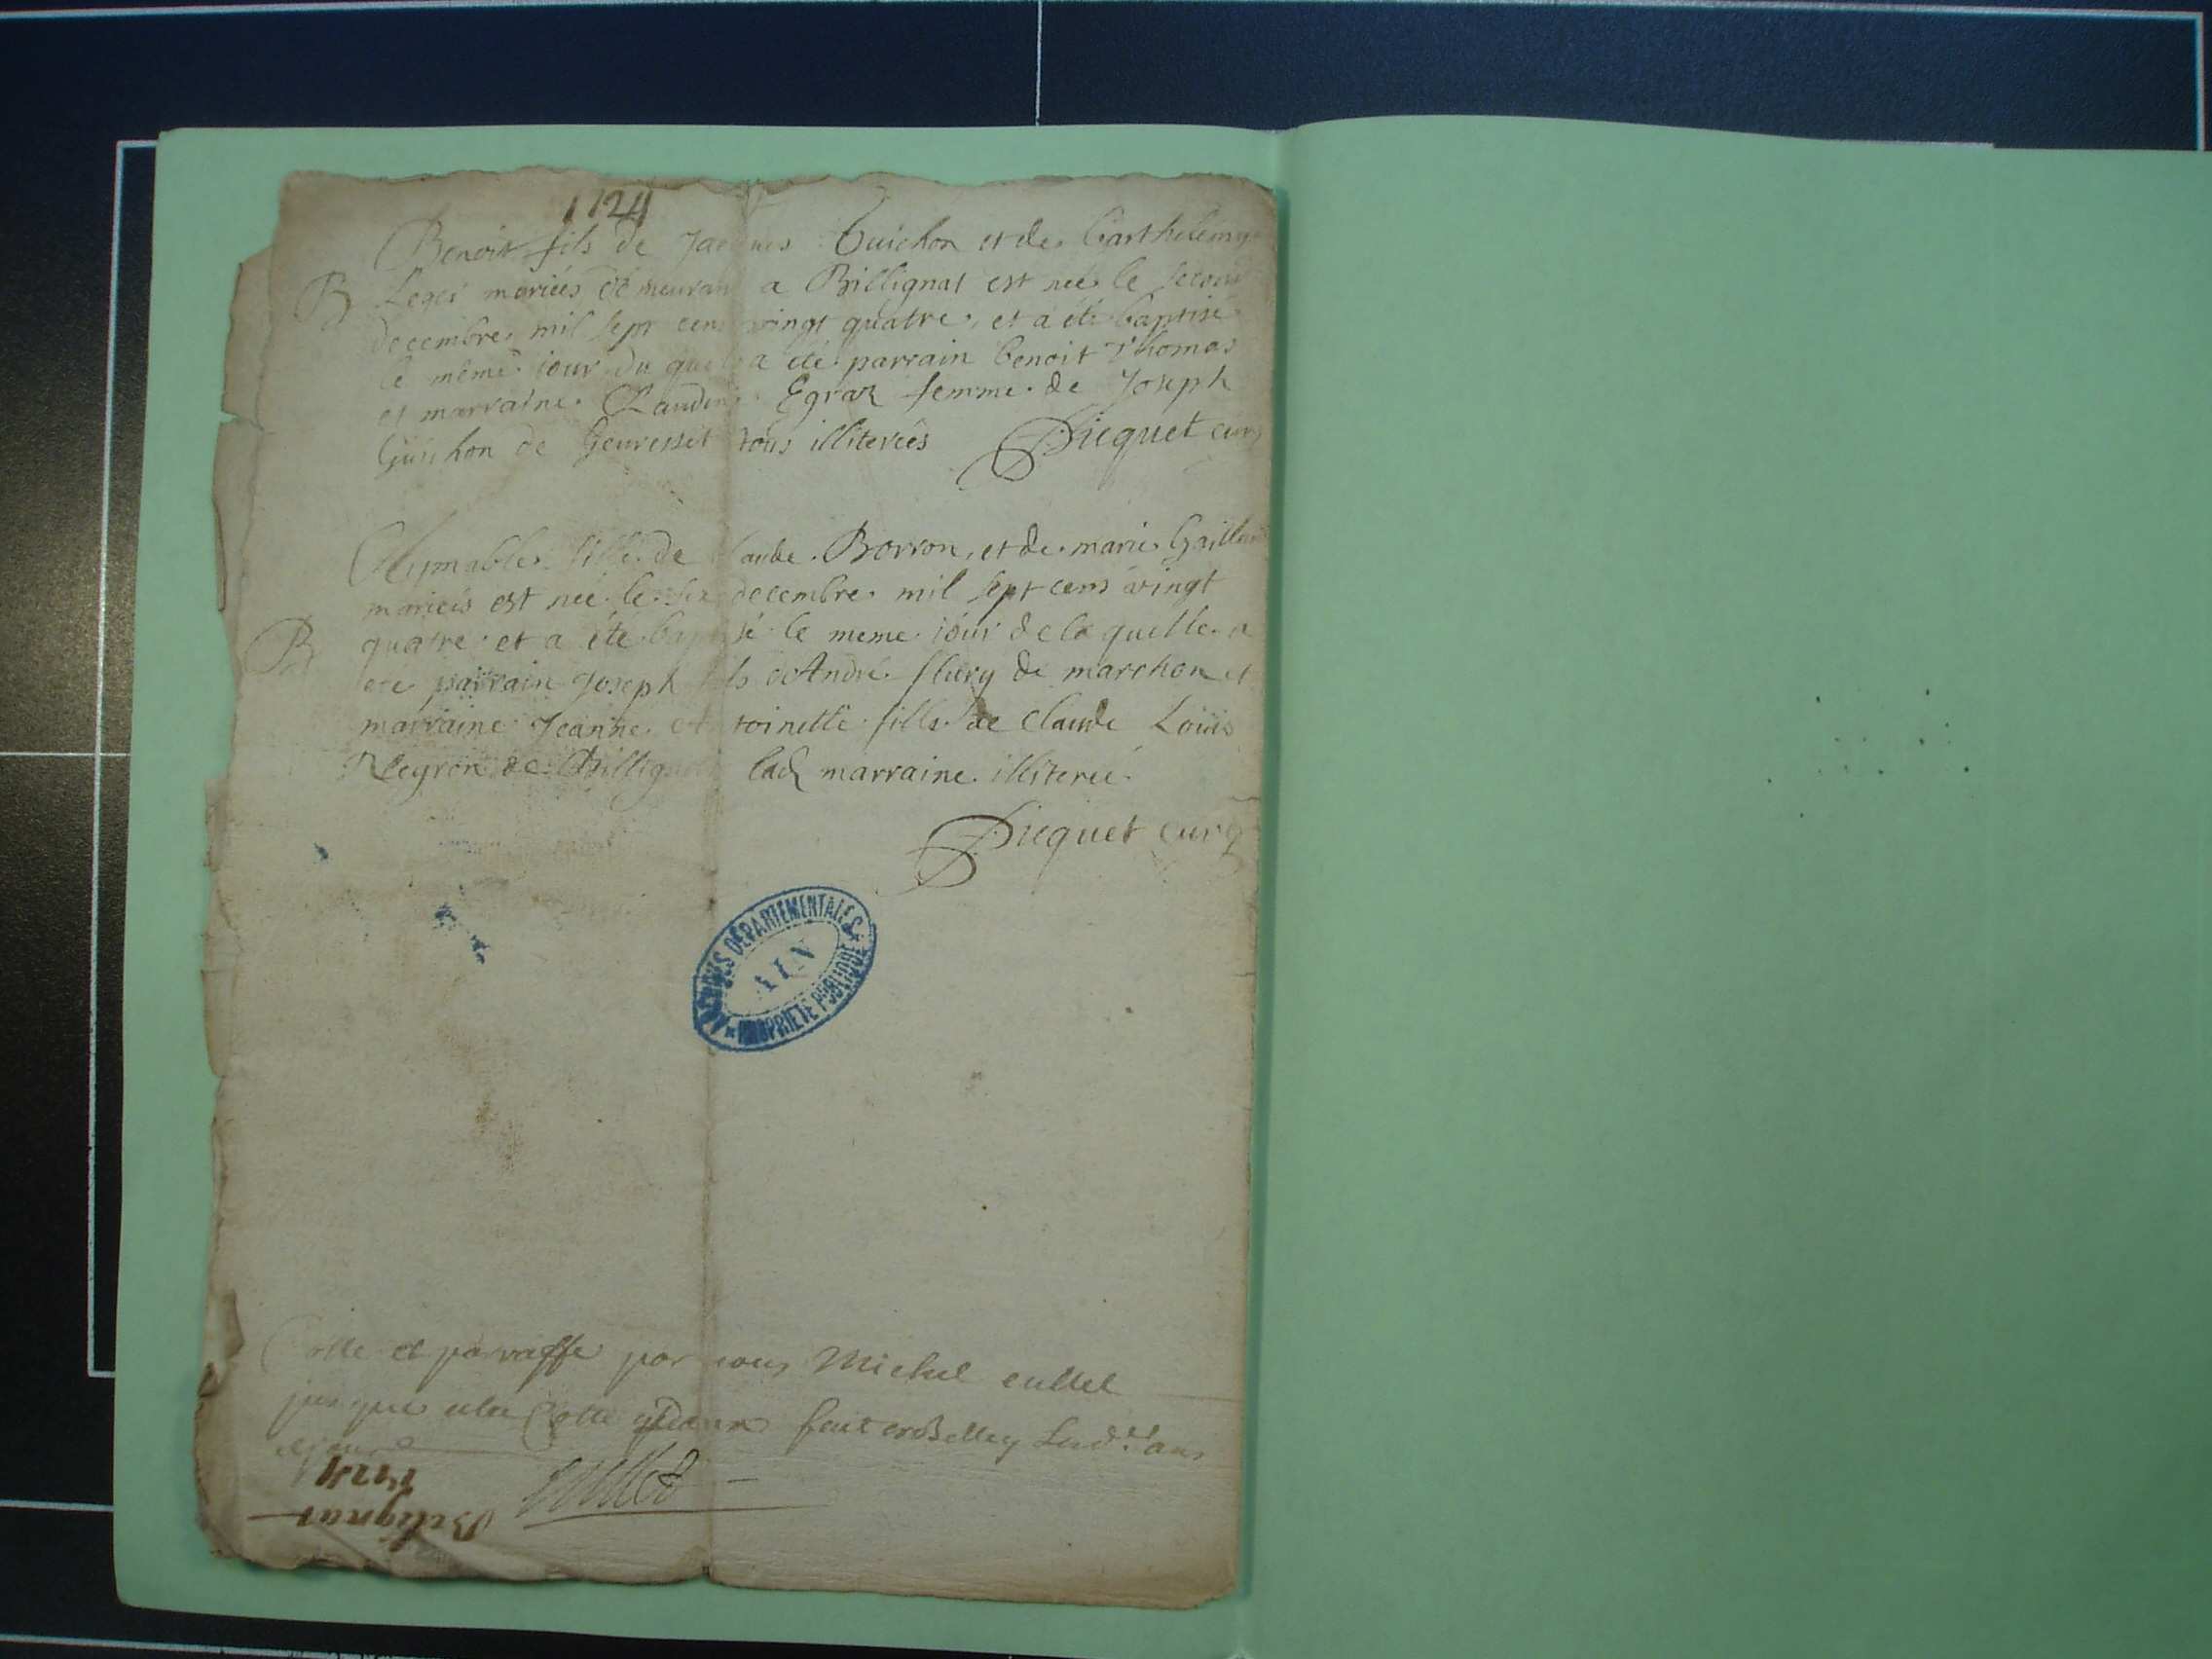 1724
Benoit fils de Jacques Guichon et de Barthelemye
B Leger mariés demeurant a Billignat est née le second
decembre mil sept cens vingt quatre, et a été baptisé
le même iour du quel a été parrain benoit Thomas
et marraine Claudine Egraz femme de Joseph
Guichon de Gevresset tous illiterées Picquet curé
fille de Claude Borron, et de marie Gaillard
mariés est née le six decembre mil sept cens vingt
B quatre et a été baptisé le meme iour de la quelle a
été parrain Joseph fils d'André flury de marchon et
marraine Jeanne Antoinette fille de Claude Louis
Neyron de Billignat lad marraine illiterée
Picquet curé
ARCHIVES DÉPARTEMENTALES
AIN
PROPRIÉTÉ PUBLIQUE
Cotte et paraffe par nous Michel cullet
jusques a la Cotte fait a Belley ans
cullet
1724
Bilignat